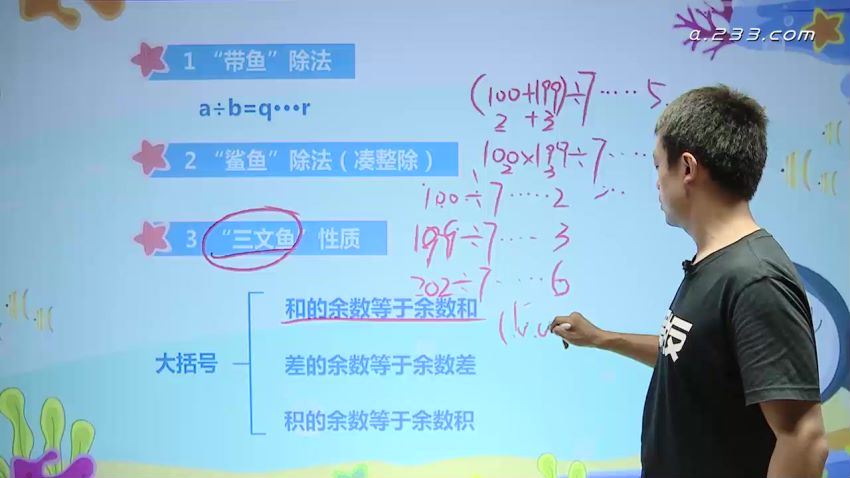 a.233.com
1 “带鱼”除法
a÷b=q···r
2 “鲨鱼”除法（凑整除）
3 “三文鱼”性质
大括号
和的余数等于余数和
差的余数等于余数差
积的余数等于余数积
(100+199)÷7 ····· 5
2 + 3
100×199÷7 ·····
2 3
100÷7 ····· 2
199÷7 ····· 3
202÷7 ····· 6